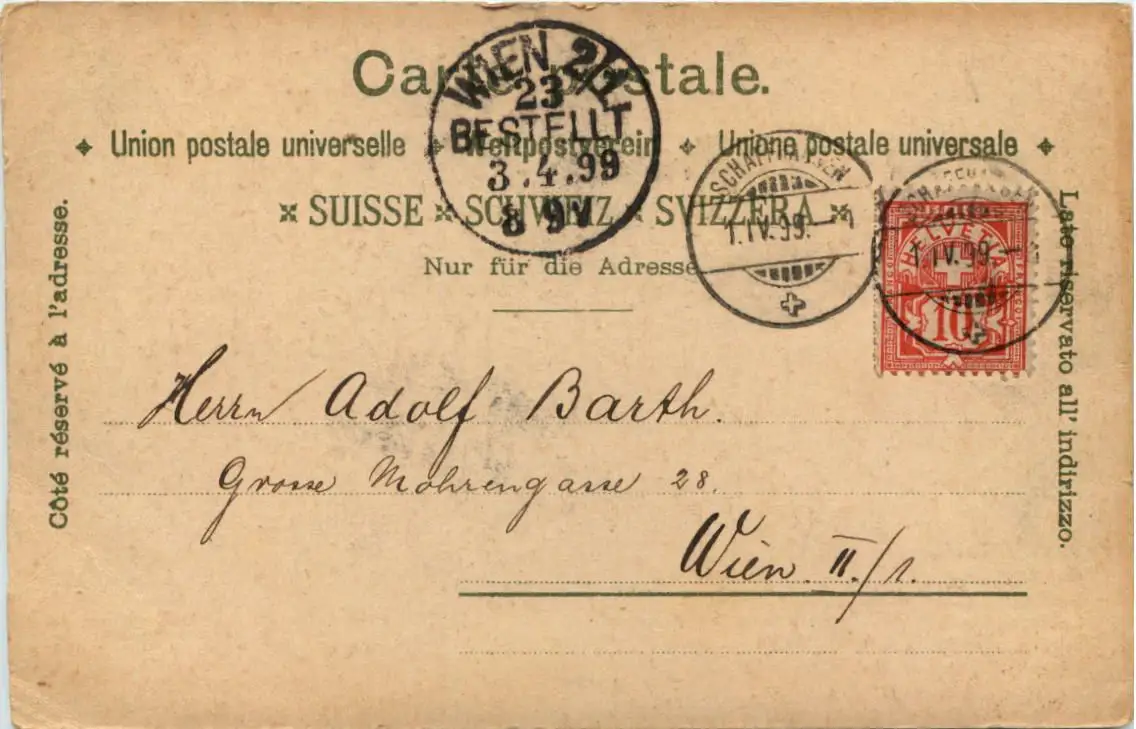 Carte postale.
Union postale universelle Weltpostverein Unione postale universale
SUISSE SCHWEIZ SVIZZERA
Nur für die Adresse
Côté réservé à l'adresse.
Lato riservato all' indirizzo.
WIEN 2/1.
23
BESTELLT
3.4.99
8 9V
SCHAFFHAUSEN
1.IV.99.
SCHAFFHAUSEN
1.IV.99.
HELVETIA
FRANCO
10
Herrn Adolf Barth.
Grosse Mohrengasse 28.
Wien. II./1.